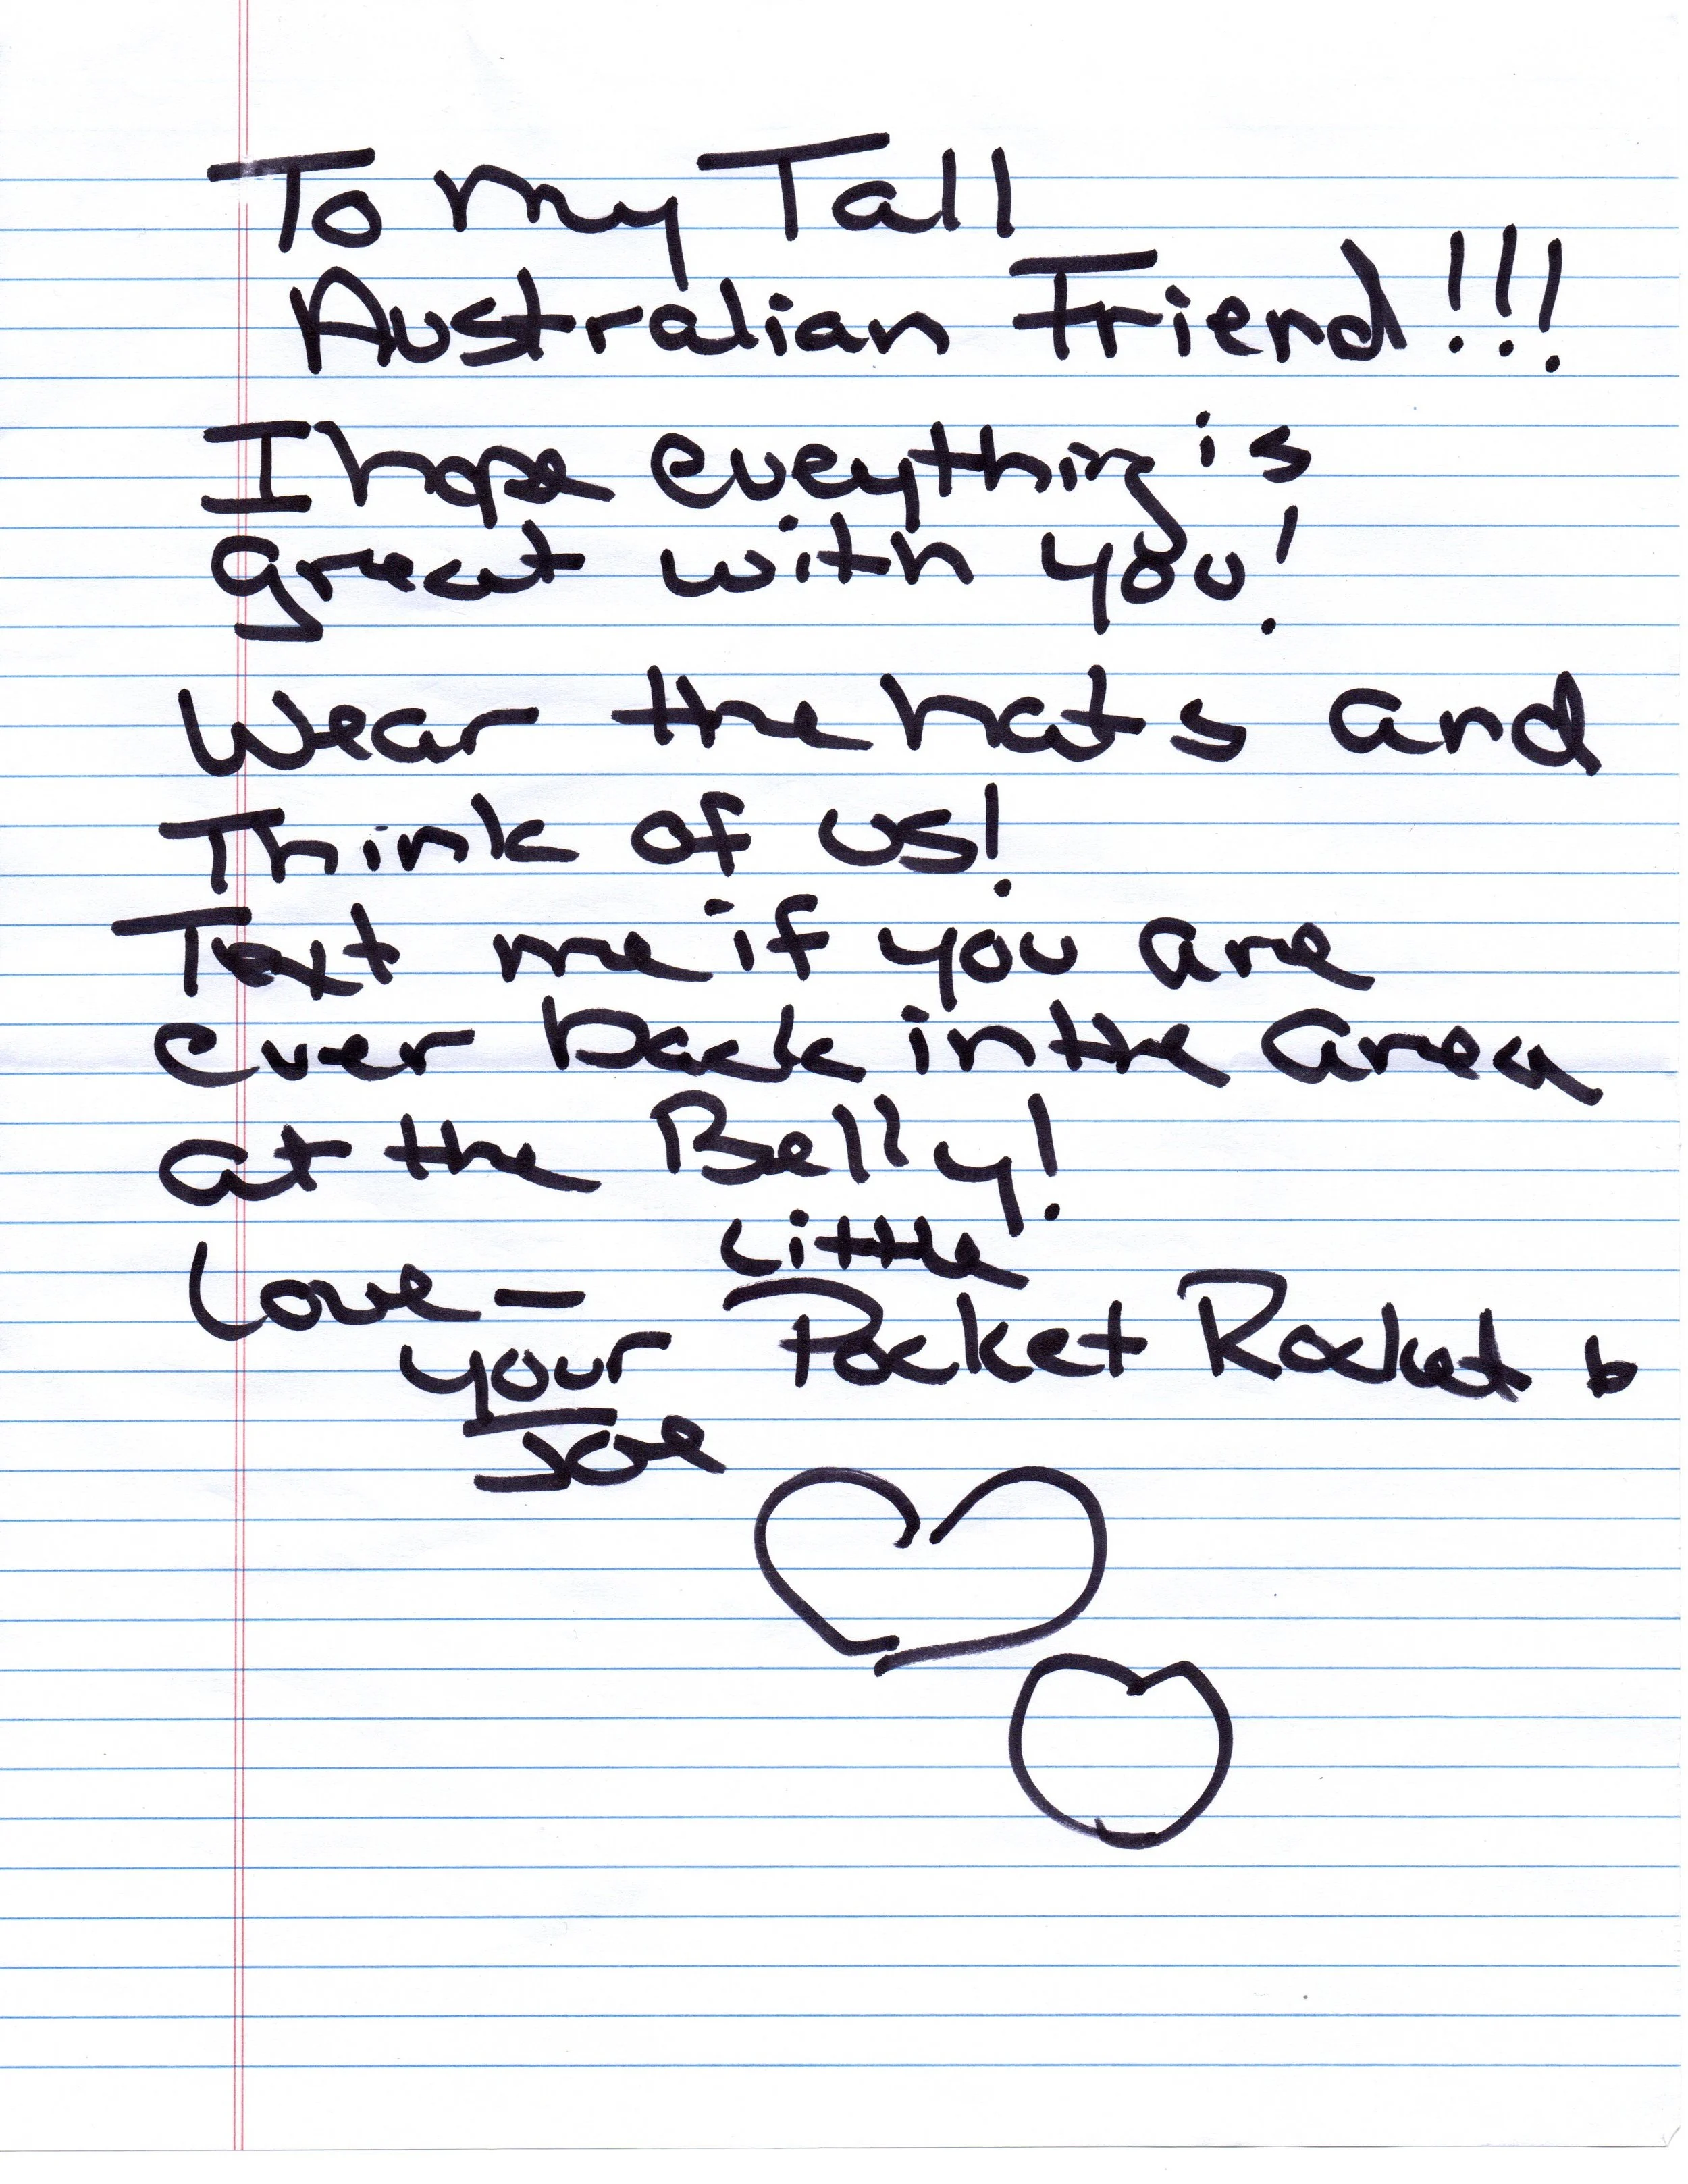 To my Tall
Australian Friend!!!
I hope eveything is
great with you!
Wear the hats and
Think of us!
Text me if you are
ever back in the area
at the Belly!
Love –
your Little Pocket Rocket
Joe